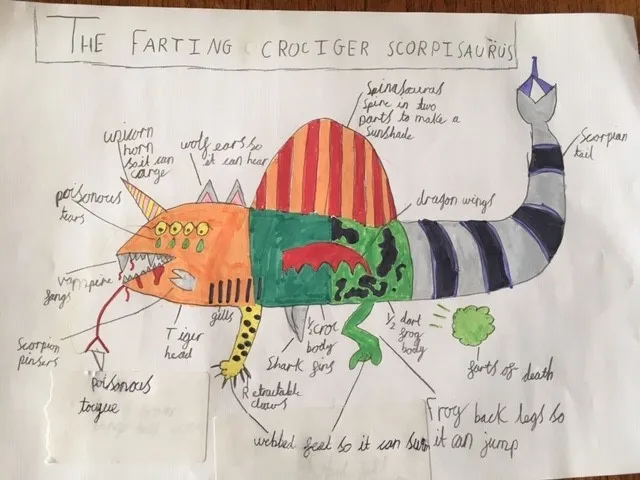 THE FARTING CROCIGER SCORPISAURUS
Spinasauras
spine in two
parts to make a
sunshade
unicorn
horn
so it can
carge
wolf ears so
it can hear
Scorpian
tail
poisonous
tears
dragon wings
vampire
fangs
gills
Scorpion
pinsers
Tiger
head
Shark fins
½ croc
body
½ dart
frog
body
farts of death
poisonous
tougue
Retractable
claws
webbed feet so it can swim
Frog back legs so
it can jump